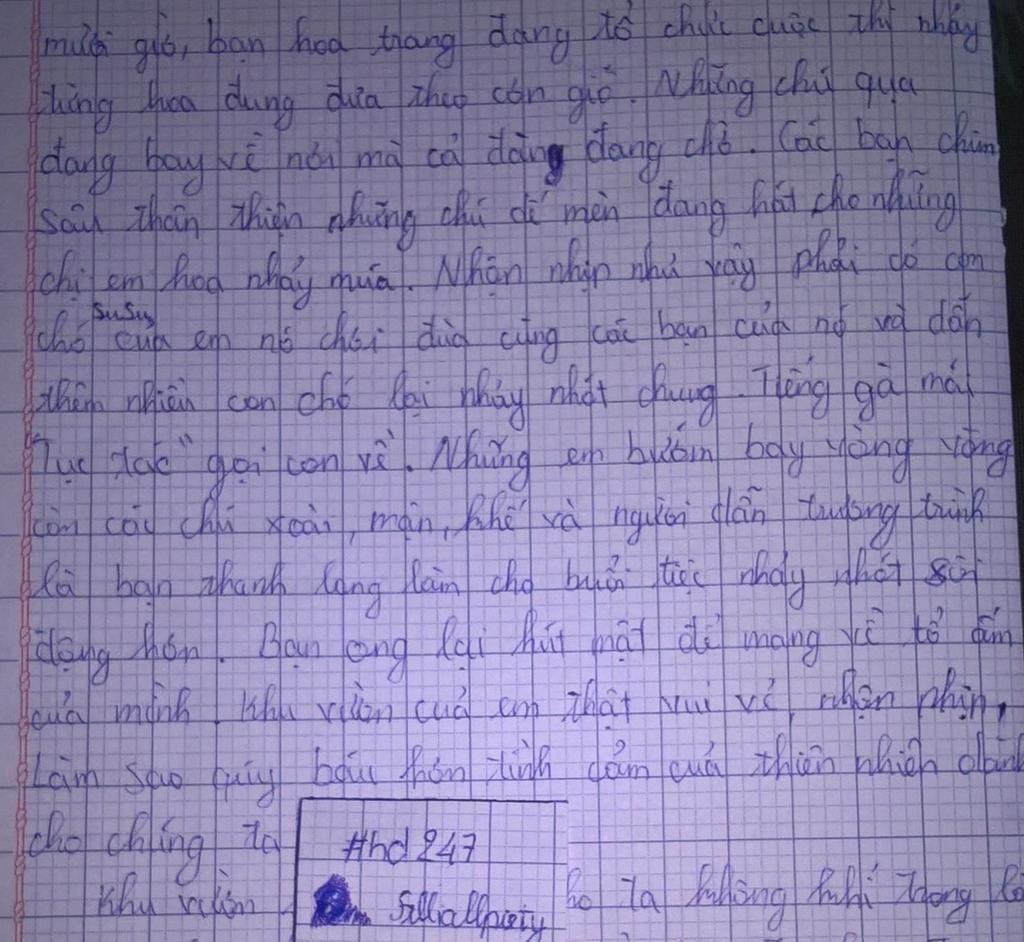 mười giờ, bạn hoa trang đang tổ chức cuộc thi nhảy
từng hoa đung đưa theo cơn gió. Những chú quạ
đang bay về nơi mà cả đàn đang chờ. Các bạn chim
sâu thân thiện những chú dế mèn đang hát cho những
chị em hoa nhảy múa. Nhộn nhịp như vậy phải có con
chó SuSu của em nó chơi đùa cùng các bạn của nó và dẫn
thêm nhiều con chó lại nhảy nhót chung. Tiếng gà mái
"Tục tác" gọi con về. Những em bướm bay vòng vòng
còn các chú xoài, mận, khế và người dẫn trương trình
là bạn thanh long làm cho buổi tiệc nhảy nhót sôi
động hơn. Bạn ong lại hút mật để mang về tổ ấm
của mình. Khu vườn của em thật vui vẻ, nhộn nhịp,
Làm sao quíy báu hơn tình cảm của thiên nhiên dành
cho chúng ta
#hd247
Khu vườn ho ta không khí trong
Filliallpiety